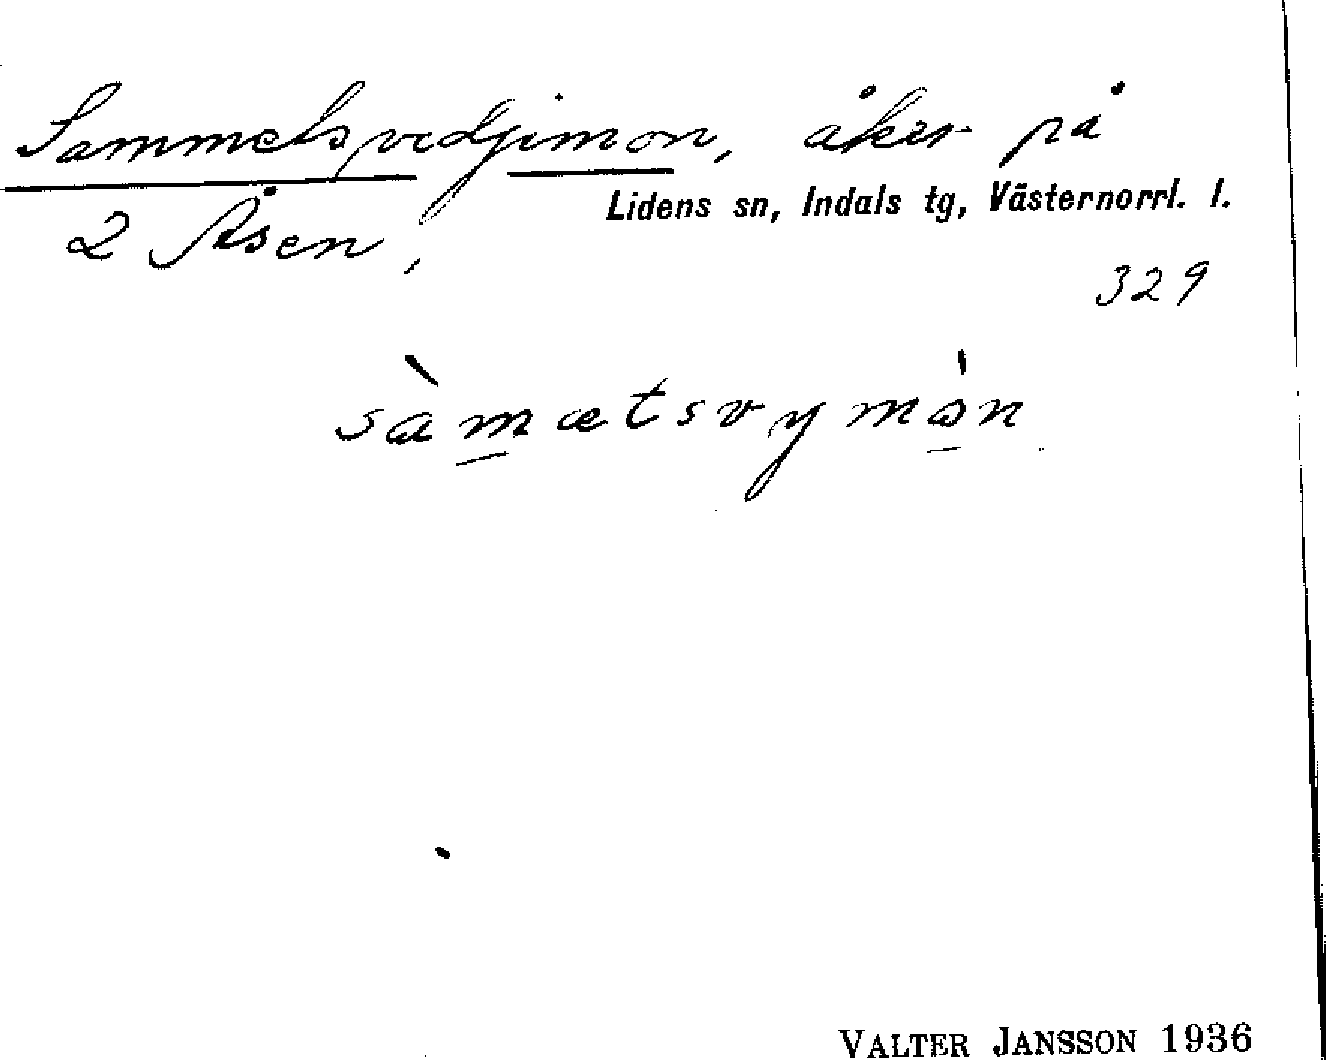 Sammelsvedjimon, åker på
Lidens sn, Indals tg, Västernorrl. l.
2 Åsen,
329
VALTER JANSSON 1936